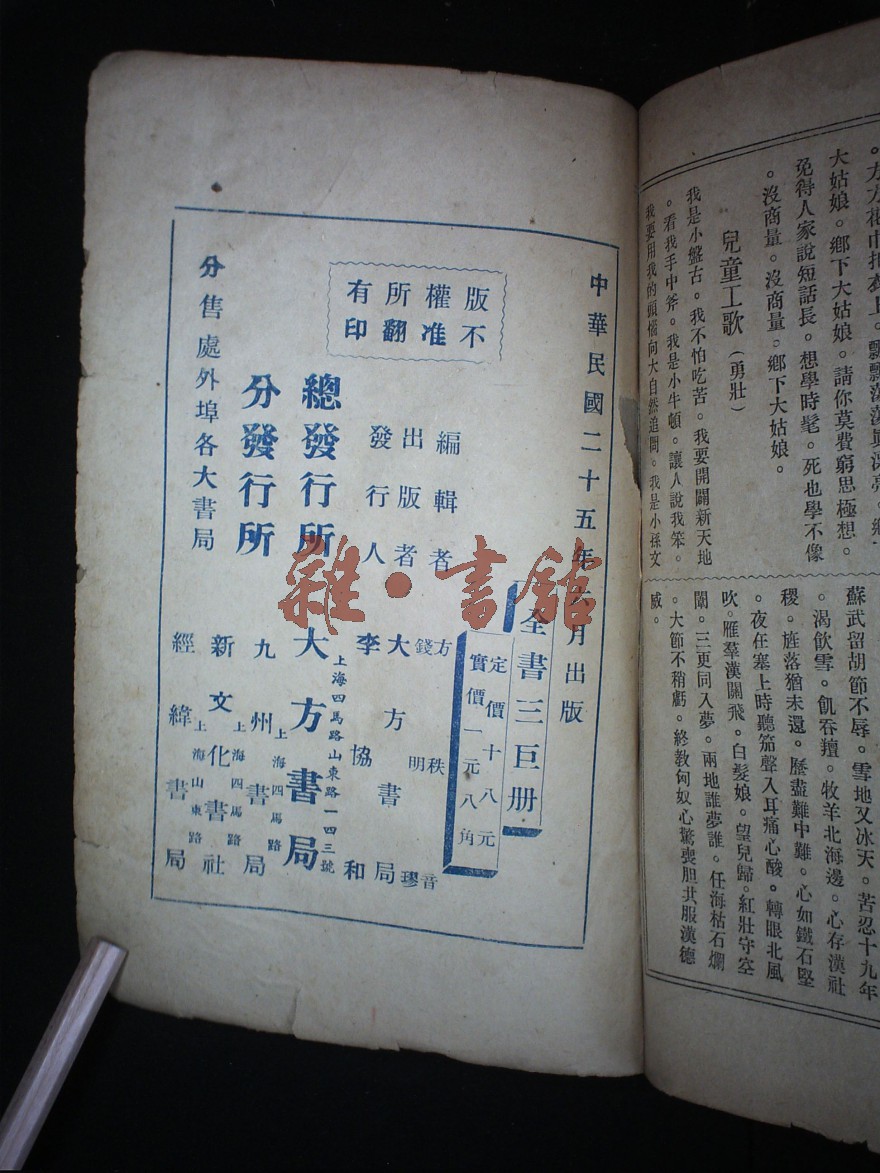 。沒商量。沒商量。鄉下大姑娘。
大姑娘。鄉下大姑娘。請你莫費窮思極想。
免得人家說短話長。想學時髦。死也學不像
兒童工歌（勇壯）
我是小盤古。我不怕吃苦。我要開闢新天地
。看我手中斧。我是小牛頓。讓人說我笨。
我要用我的頭腦向大自然追問。我是小孫文
蘇武留胡節不辱。雪地又冰天。苦忍十九年
。渴飲雪。飢吞羶。牧羊北海邊。心存漢社
稷。旌落猶未還。歷盡難中難。心如鐵石堅
。夜在塞上時聽笳聲入耳痛心酸。轉眼北風
吹。雁羣漢關飛。白髮娘。望兒歸。紅壯守空
闈。三更同入夢。兩地誰夢誰。任海枯石爛
。大節不稍虧。終教匈奴心驚喪胆共服漢德
威。
中華民國二十五年六月出版
全書三巨册
定價十八元
實價一元八角
版權所有
不准翻印
編輯者 方 秩 音
錢 明 璆
出版者 大方書局
發行人 李協和
總發行所 大方書局
上海四馬路山東路一四三號
分發行所 九州書局
上海四馬路
新文化書社
上海四馬路
經緯書局
上海山東路
分售處外埠各大書局
雜·書館